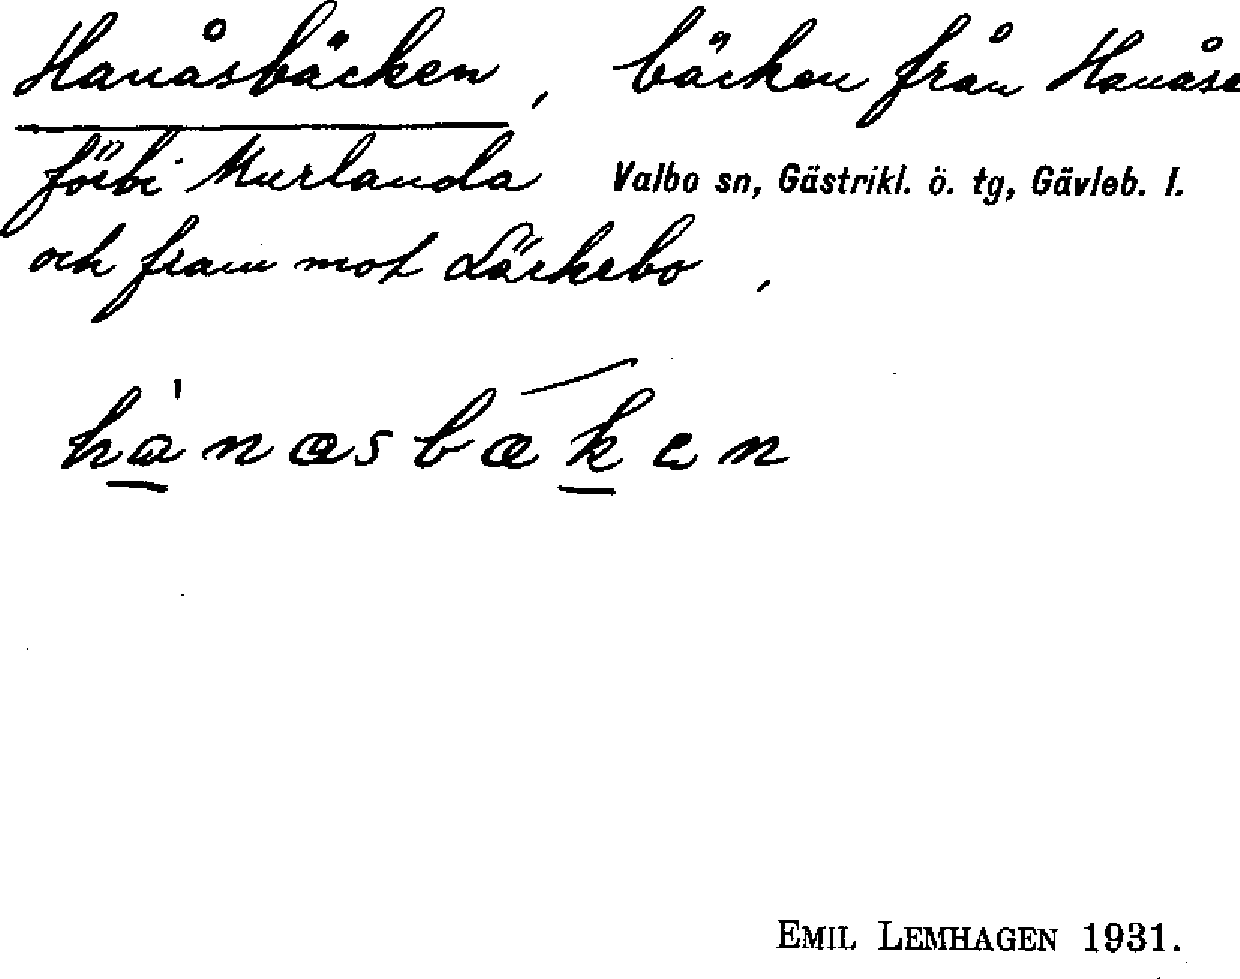 Hanåsbäcken, bäcken från Hanåse
förbi Murlanda Valbo sn, Gästrikl. ö. tg, Gävleb. l.
och fram mot Läckebo,
hànæsbæken
EMIL LEMHAGEN 1931.